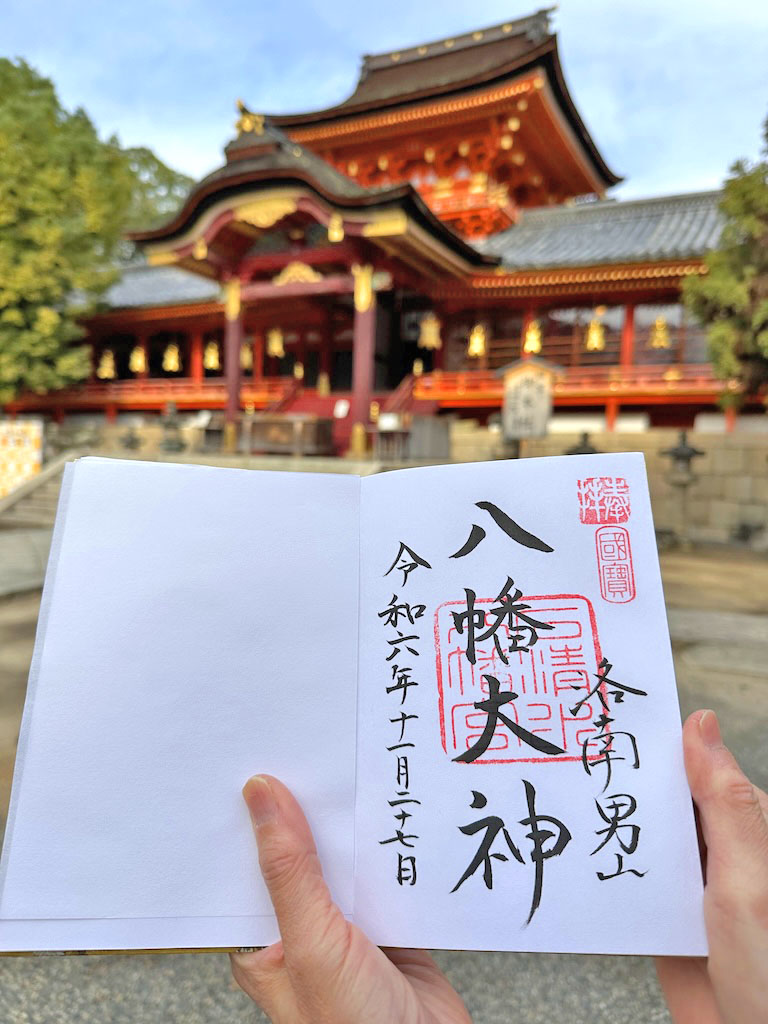 奉拝
國寶
洛南男山
八幡大神
石清水八幡宮
令和六年十一月二十七日